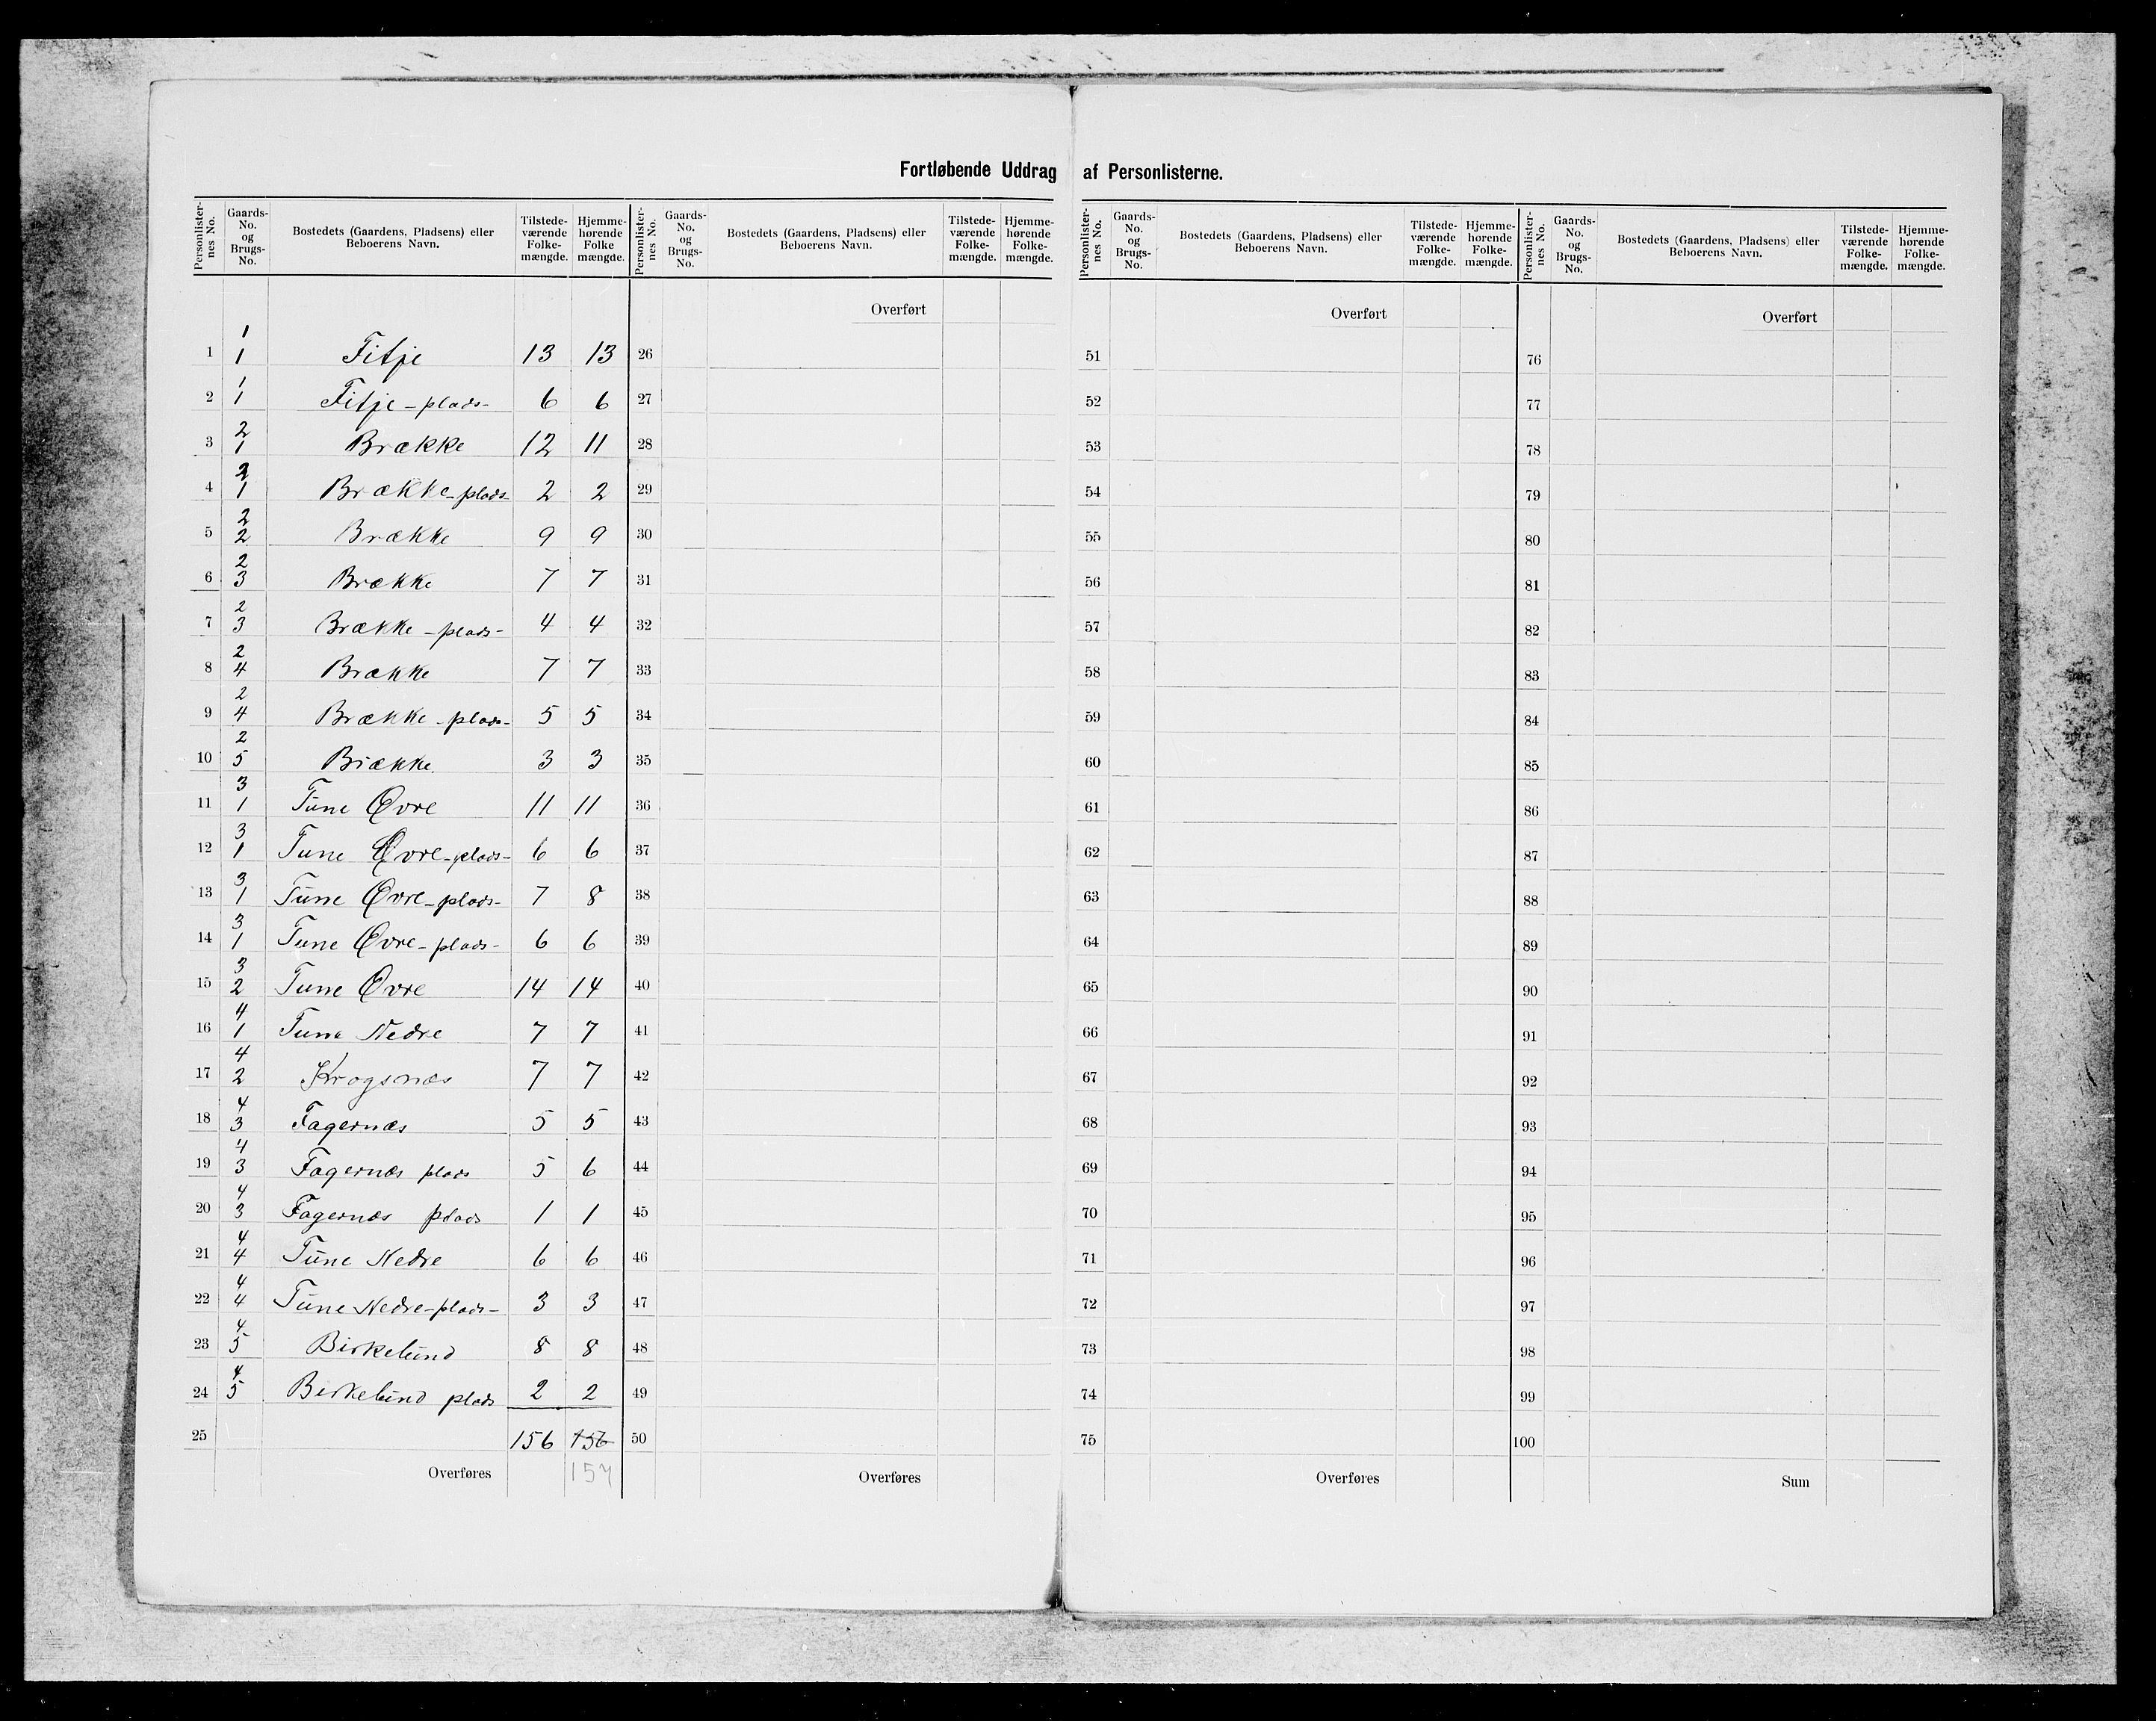 Fortløbende Uddrag af Personlisterne.
Personlisternes No. Gaards-No. og Brugs-No. Bostedets (Gaardens, Pladsens) eller Beboerens Navn. Tilstedeværende Folkemængde. Hjemmehørende Folke mængde.
1 1 1 Fitje 13 13
2 1 1 Fitje-plads- 6 6
3 2 1 Brække 12 11
4 2 1 Brække-plads- 2 2
5 2 2 Brække 9 9
6 2 3 Brække 7 7
7 2 3 Brække-plads- 4 4
8 2 4 Brække 7 7
9 2 4 Brække-plads- 5 5
10 2 5 Brække 3 3
11 3 1 Tune Øvre 11 11
12 3 1 Tune Øvre-plads- 6 6
13 3 1 Tune Øvre-plads- 7 8
14 3 1 Tune Øvre-plads- 6 6
15 3 2 Tune Øvre 14 14
16 4 1 Tune Nedre 7 7
17 4 2 Krogsnæs 7 7
18 4 3 Fagernæs 5 5
19 4 3 Fagernæs plads 5 6
20 4 3 Fagernæs plads 1 1
21 4 4 Tune Nedre 6 6
22 4 4 Tune Nedre-plads- 3 3
23 4 5 Birkelund 8 8
24 4 5 Birkelund plads 2 2
25 156 156
Overføres 157
Personlisternes No. Gaards-No. og Brugs-No. Bostedets (Gaardens, Pladsens) eller Beboerens Navn. Tilstedeværende Folkemængde. Hjemmehørende Folkemængde.
Overført
26
27
28
29
30
31
32
33
34
35
36
37
38
39
40
41
42
43
44
45
46
47
48
49
50
Overføres
Personlisternes No. Gaards-No. og Brugs-No. Bostedets (Gaardens, Pladsens) eller Beboerens Navn. Tilstedeværende Folkemængde. Hjemmehørende Folkemængde.
Overført
51
52
53
54
55
56
57
58
59
60
61
62
63
64
65
66
67
68
69
70
71
72
73
74
75
Overføres
Personlisternes No. Gaards-No. og Brugs-No. Bostedets (Gaardens, Pladsens) eller Beboerens Navn. Tilstedeværende Folkemængde. Hjemmehørende Folkemængde.
Overført
76
77
78
79
80
81
82
83
84
85
86
87
88
89
90
91
92
93
94
95
96
97
98
99
100
Sum